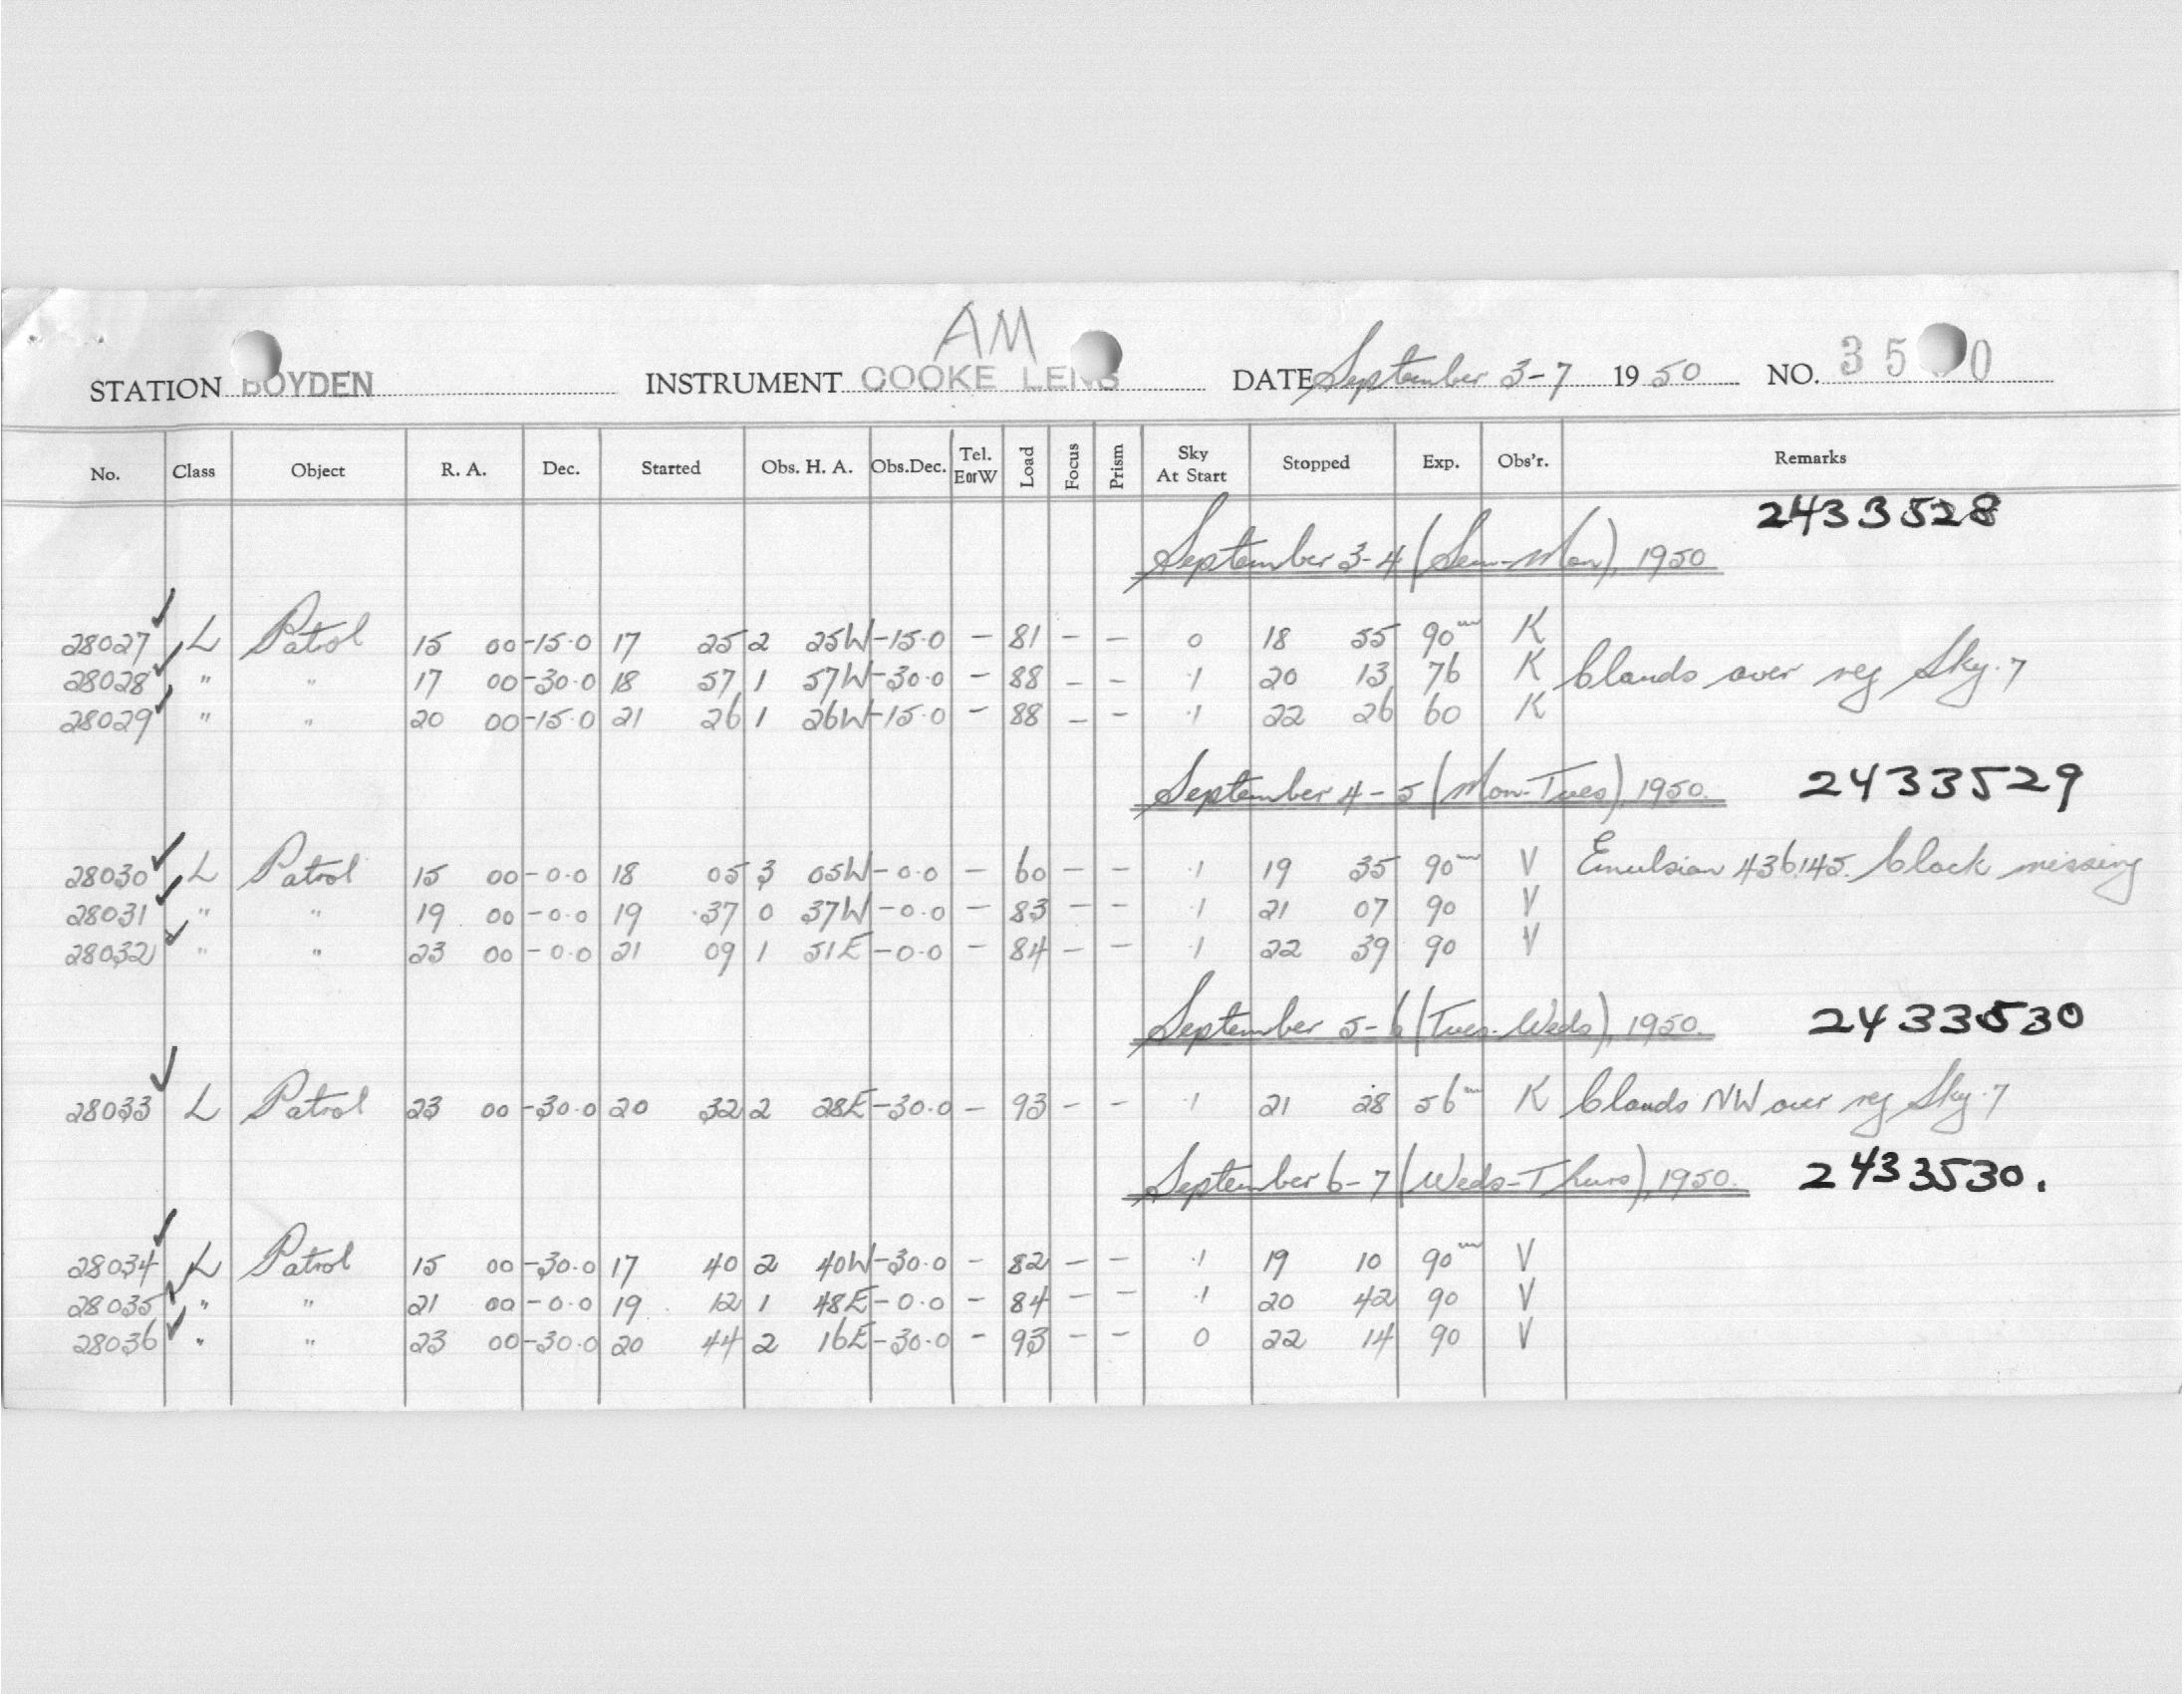 AM
STATION BOYDEN INSTRUMENT COOKE LENS DATE September 3-7 1950 NO. 35 0
No. Class Object R. A. Dec. Started Obs. H. A. Obs.Dec. Tel. EorW Load Focus Prism Sky At Start Stopped Exp. Obs'r. Remarks
2433528
September 3-4 (Sun-Mon), 1950
28027 L Patrol 15 00 -15.0 17 25 2 25W -15.0 - 81 - - 0 18 55 90m K
28028 " " 17 00 -30.0 18 57 1 57W -30.0 - 88 - - .1 20 13 76 K Clouds over reg Sky .7
28029 " " 20 00 -15.0 21 26 1 26W -15.0 - 88 - - .1 22 26 60 K
September 4-5 (Mon-Tues), 1950. 2433529
28030 L Patrol 15 00 -0.0 18 05 3 05W -0.0 - 60 - - .1 19 35 90m V Emulsion 436145. Clock missing
28031 " " 19 00 -0.0 19 37 0 37W -0.0 - 83 - - .1 21 07 90 V
28032 " " 23 00 -0.0 21 09 1 51E -0.0 - 84 - - .1 22 39 90 V
September 5-6 (Tues-Weds), 1950. 2433530
28033 L Patrol 23 00 -30.0 20 32 2 28E -30.0 - 93 - - .1 21 28 56m K Clouds NW over reg Sky .7
September 6-7 (Weds-Thurs), 1950. 2433530.
28034 L Patrol 15 00 -30.0 17 40 2 40W -30.0 - 82 - - .1 19 10 90m V
28035 " " 21 00 -0.0 19 12 1 48E -0.0 - 84 - - .1 20 42 90 V
28036 " " 23 00 -30.0 20 44 2 16E -30.0 - 93 - - 0 22 14 90 V